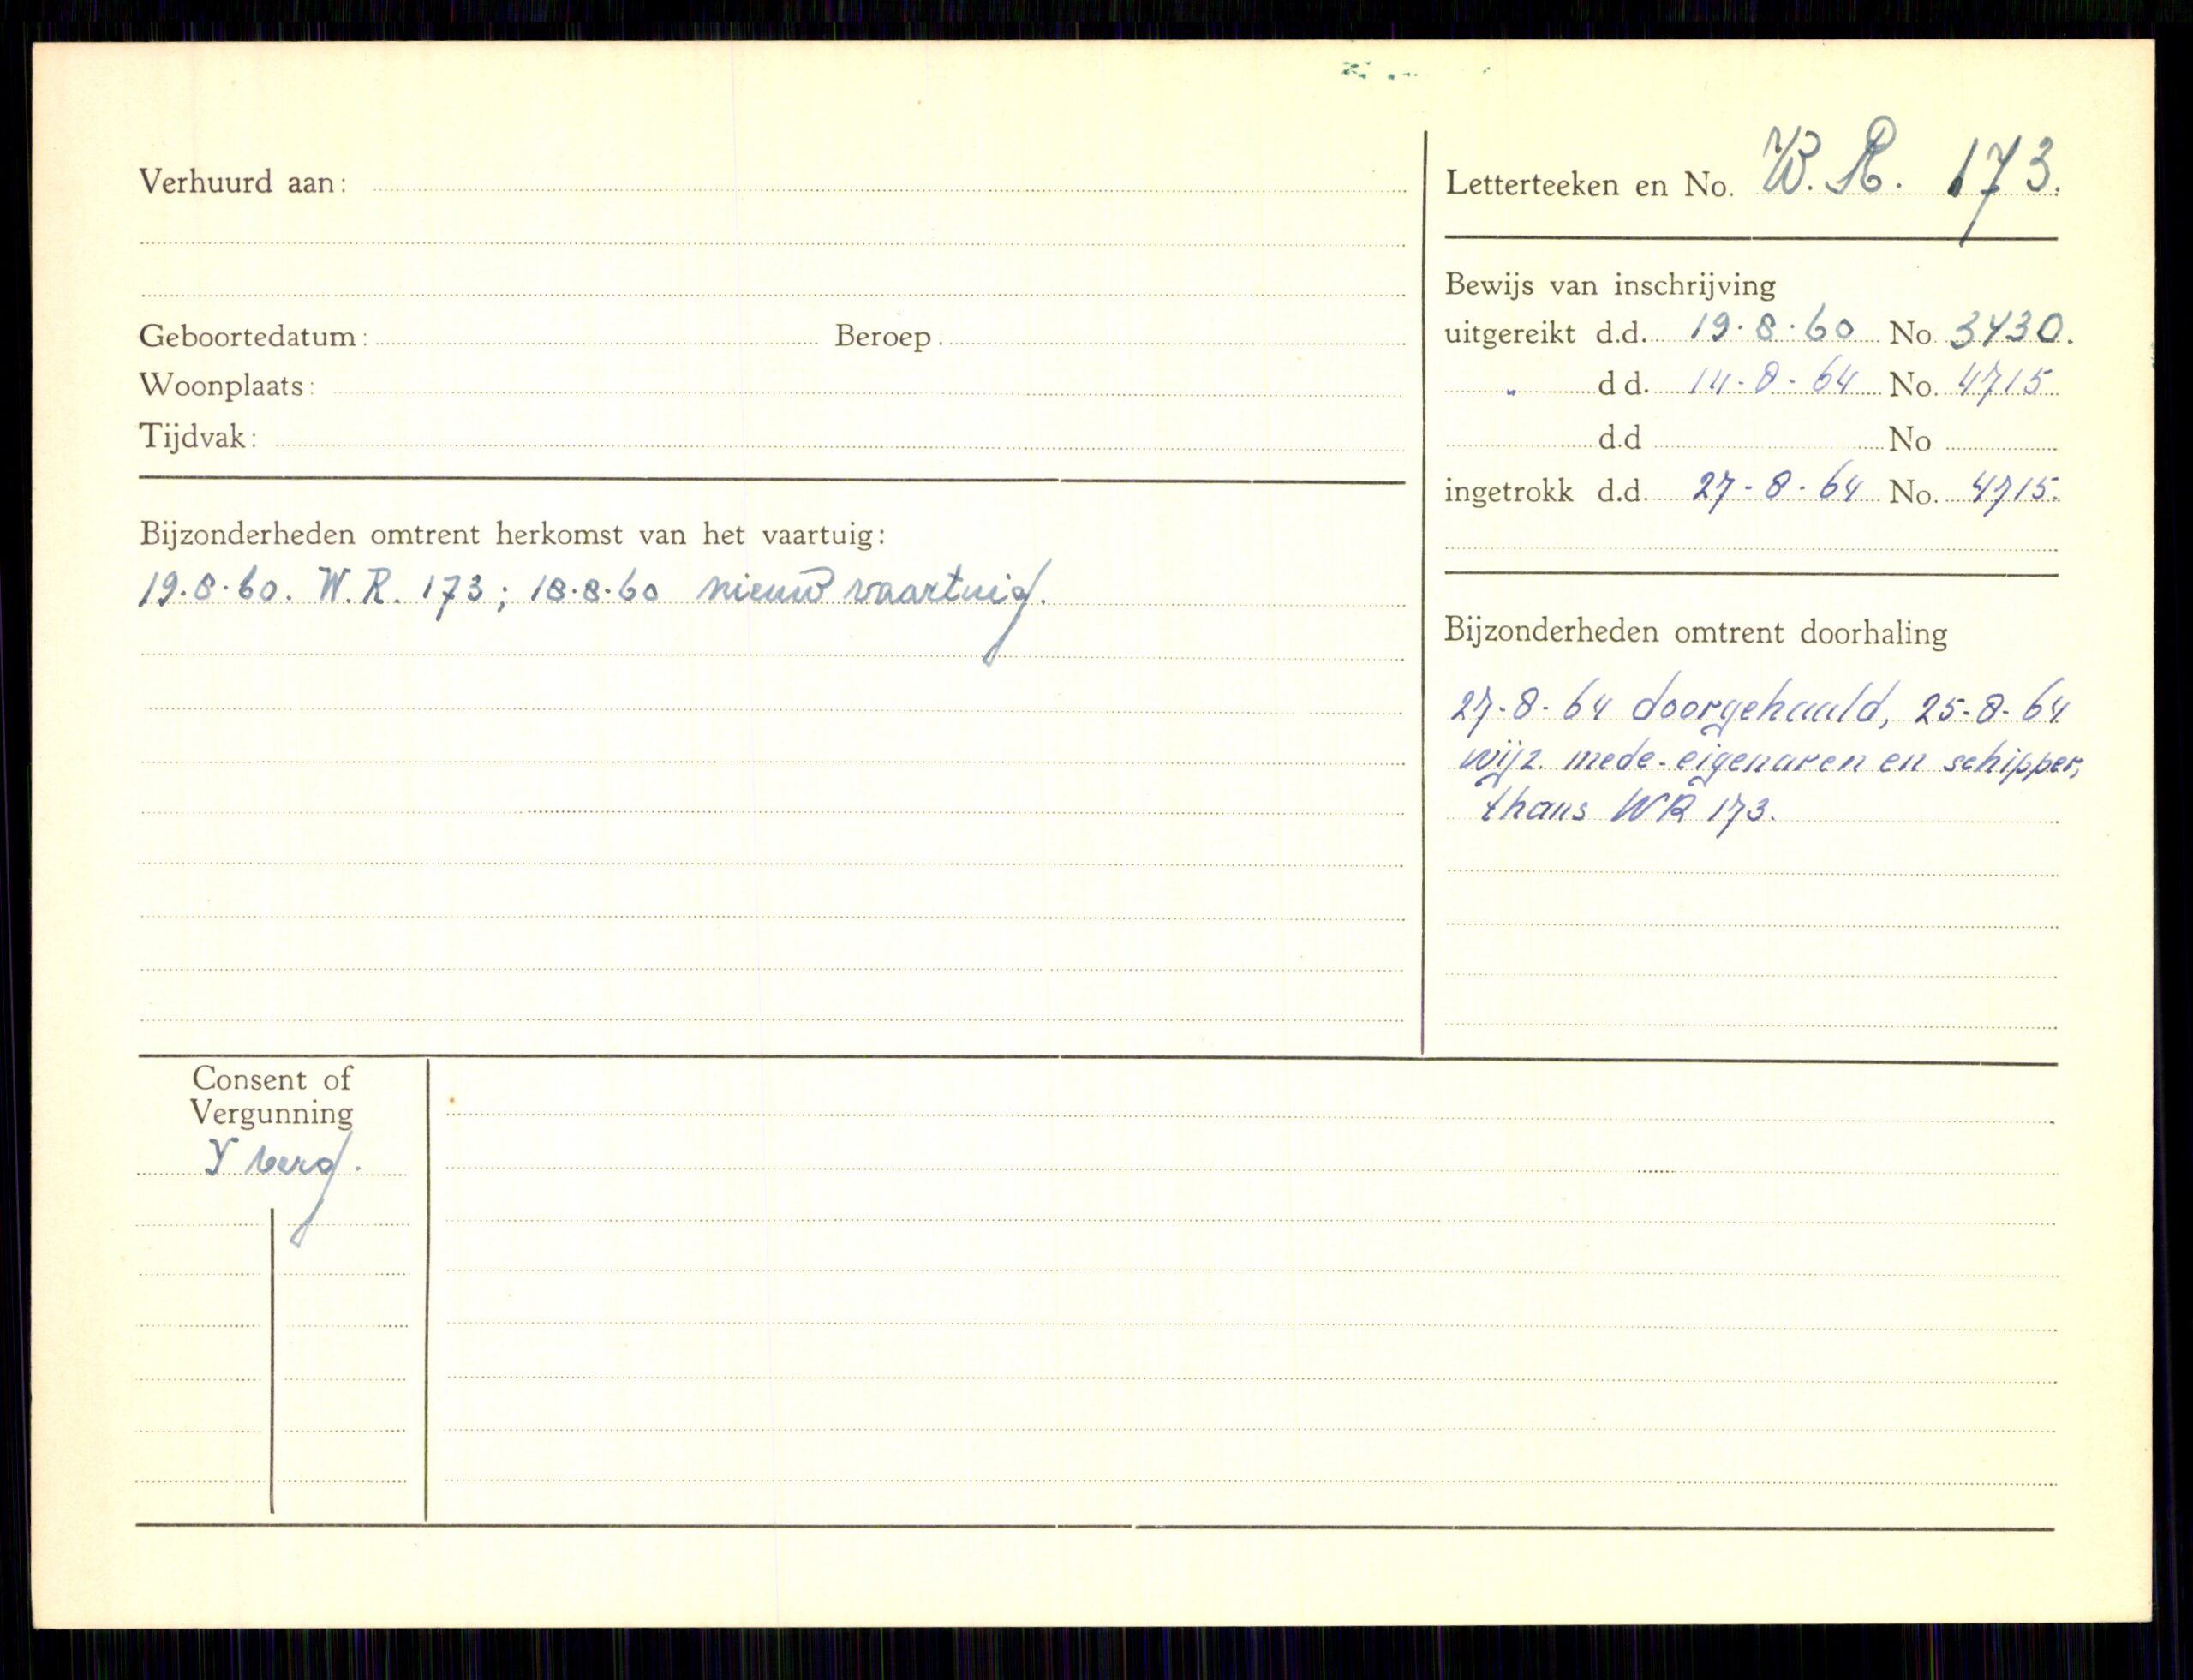 Verhuurd aan:
Geboortedatum: Beroep:
Woonplaats:
Tijdvak:
Bijzonderheden omtrent herkomst van het vaartuig:
19.8.60. W.R. 173; 18.8.60 nieuw vaartuig.
Letterteeken en No. W.R. 173.
Bewijs van inschrijving
uitgereikt d.d. 19.8.60 No. 3430.
" d d. 14-8-64 No. 4715
d.d No
ingetrokk d.d. 27-8-64 No. 4715.
Bijzonderheden omtrent doorhaling
27-8-64 doorgehaald, 25-8-64
wijz. mede-eigenaren en schipper,
thans WR 173.
Consent of
Vergunning